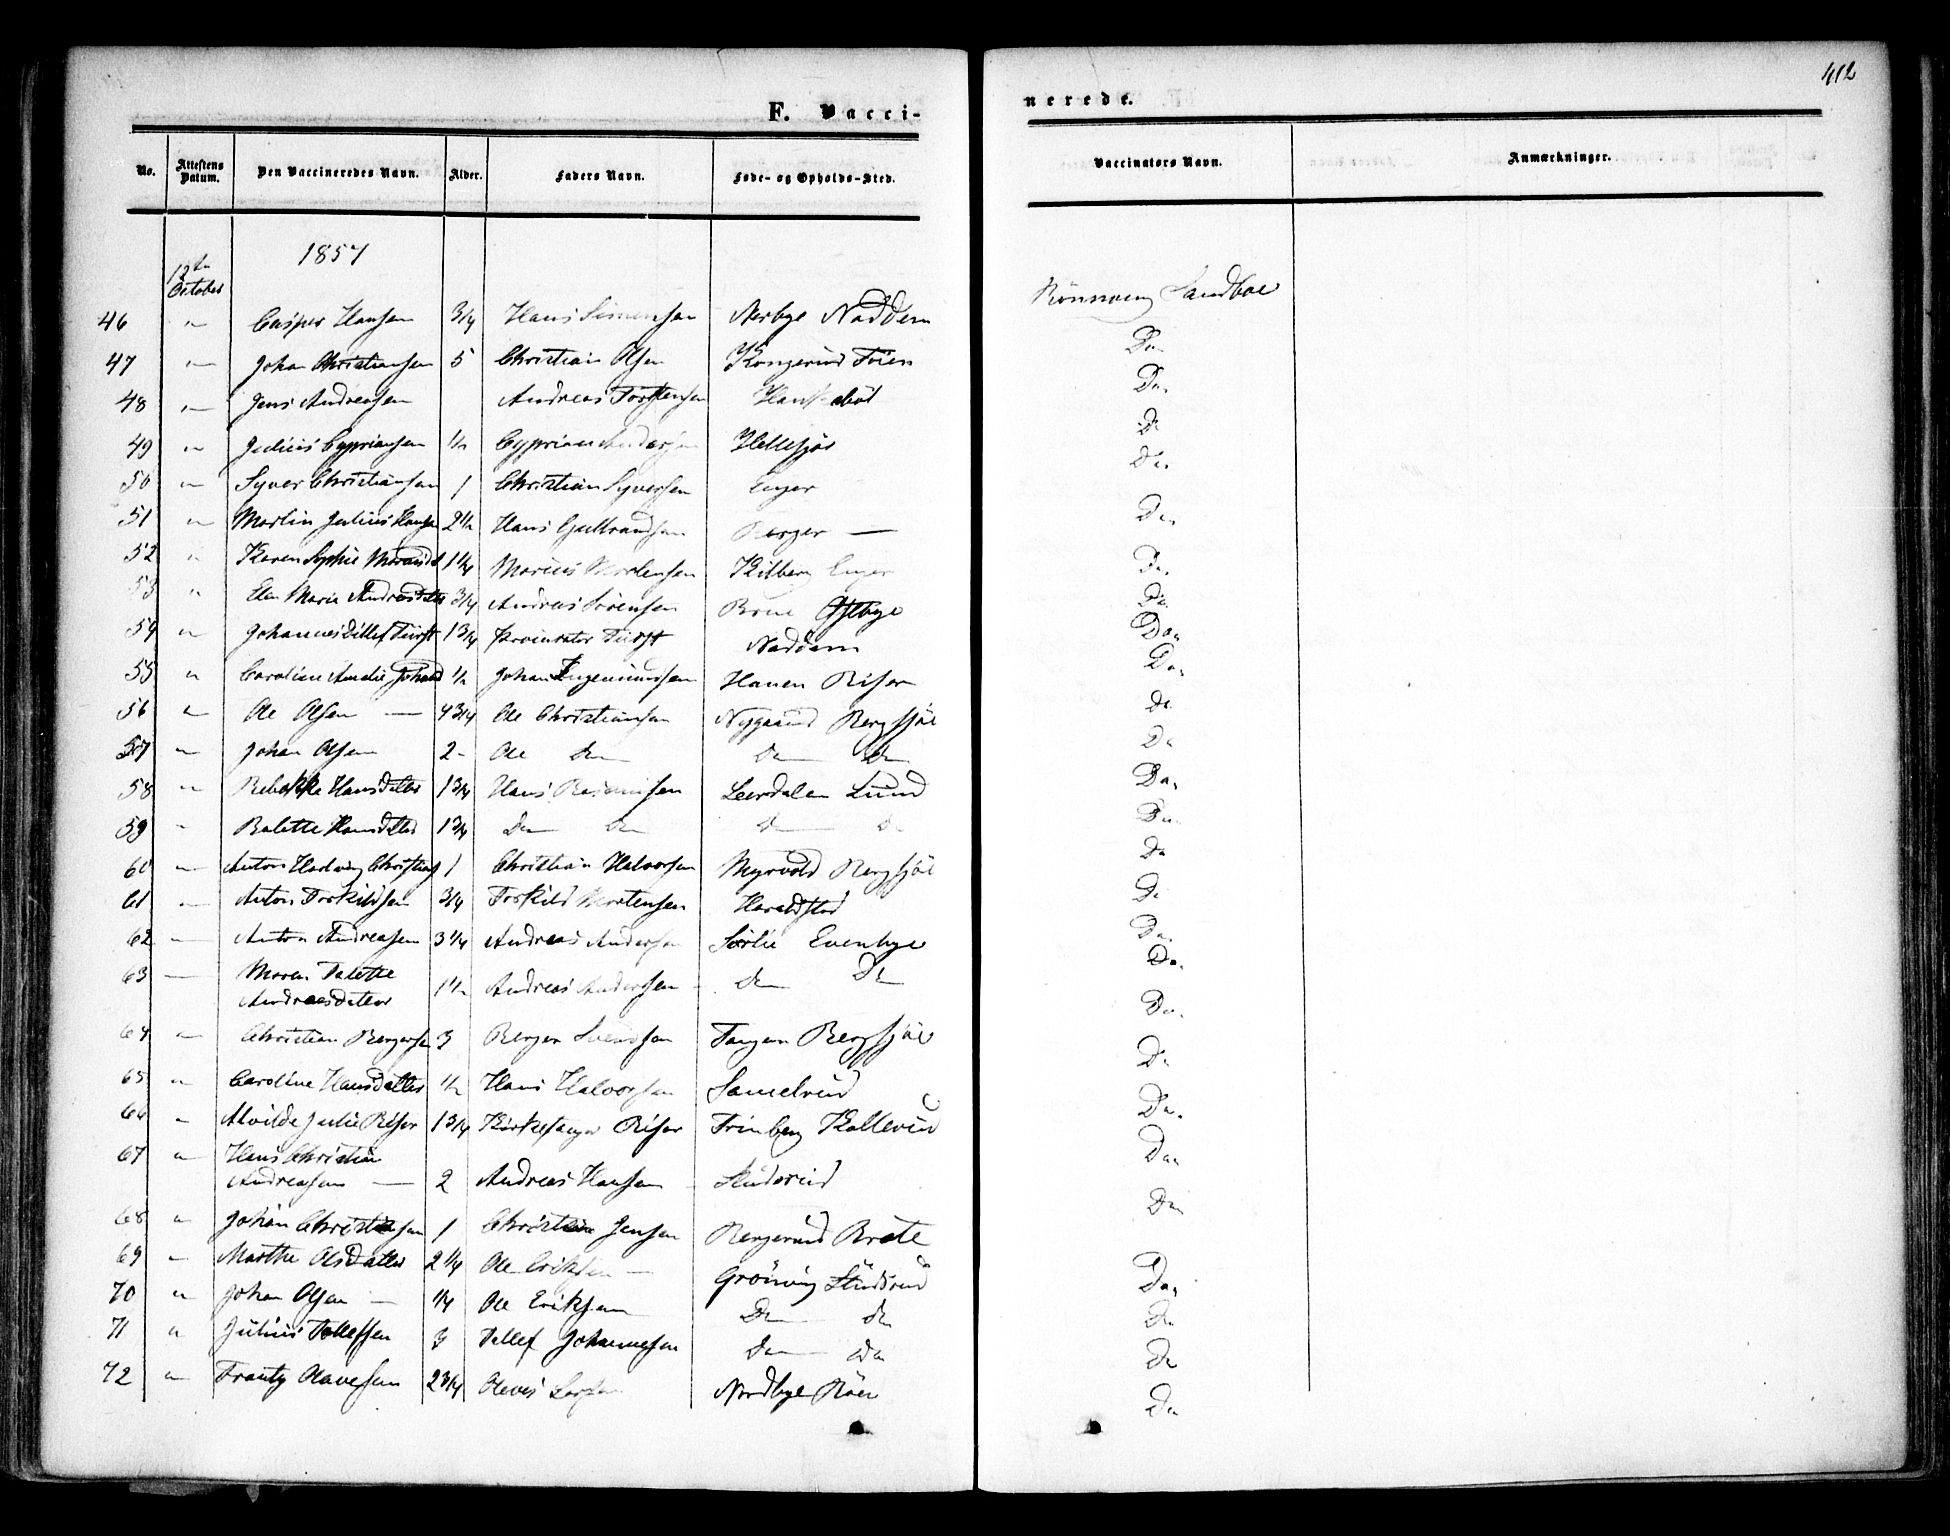 412
F. Vacci-
nerede.
No. Attestens Datum. Den Vaccineredes Navn. Alder. Faders Navn. Føde- og Opholds-Sted. Vaccinators Navn. Anmærkninger.
1857
12te October
46 " Casper Hansen 3/4 Hans Simensen Nerbye Naddem Rønnaug Sandboe
47 " Johan Christiansen 5 Christian Olsen Kongerud Toien Do
48 " Jens Andreasen Andreas Torstensen Do
49 " Julius Cypriansen 1/2 Cyprian Andersen Hellesjøe Do
50 " Syver Christiansen 1 Christian Syversen Enger Do
51 " Martin Julius Hansen 2 1/2 Hans Gulbrandsen Berger — Do
52 " Karen Sophie 1 1/4 Marius Mortensen Kilberg Enger Do
53 " Elen Marie Andreasdatter 3/4 Andreas Sørensen Do
54 " Johannes Ditlef Fürst 1 3/4 Procurator Fürst Naddem Do
55 " Caroline Amalie Johansd 1/2 Johan Ingemundsen Hanen Riser Do
56 " Ole Olsen — 4 3/4 Ole Christiansen Nygaard Bergsjøe Do
57 " Johan Olsen 2 - Ole Do Do Do Do
58 " Rebekke Hansdatter 1 3/4 Hans Leerdalen Lund Do
59 " Balette Hansdatter 1 3/4 Do Do Do Do Do
60 " Anton Hartvig Christians 1 Christian Halvorsen Myrvold Bergsjøe Do
61 " Anton Torkildsen 3/4 Torkild Mortensen Haraldstad Do
62 " Anton Andreasen 3 1/4 Andreas Andersen Sørlie Evenbye Do
63 — Maren Talette
Andreasdatter 1 1/2 Andreas Andersen Do Do Do
64 " Christian Bergersen 3 Berger Svendsen Tangen Bergsjøe Do
65 " Caroline Hansdatter 1/2 Hans Halvorsen Samelrud Do
66 " Alvilde Julie Riser 1 3/4 Kirkesanger Riser Trinborg Kollerud Do
67 " Hans Christian
Andreasen — 2 Andreas Hansen Studsrud Do
68 " Johan Christiansen 1 Christian Jensen Bergerud Brate Do
69 " Marthe Olsdatter 2 1/4 Ole Eriksen — Grönvig Studsrud Do
70 " Johan Olsen — 1/4 Ole Eriksen Do Do Do
71 " Julius Tollefsen 3 Tollef Johannesen Do Do Do
72 " Frantz Olavesen 2 3/4 Olaves Larsen Nordbye Röer Do